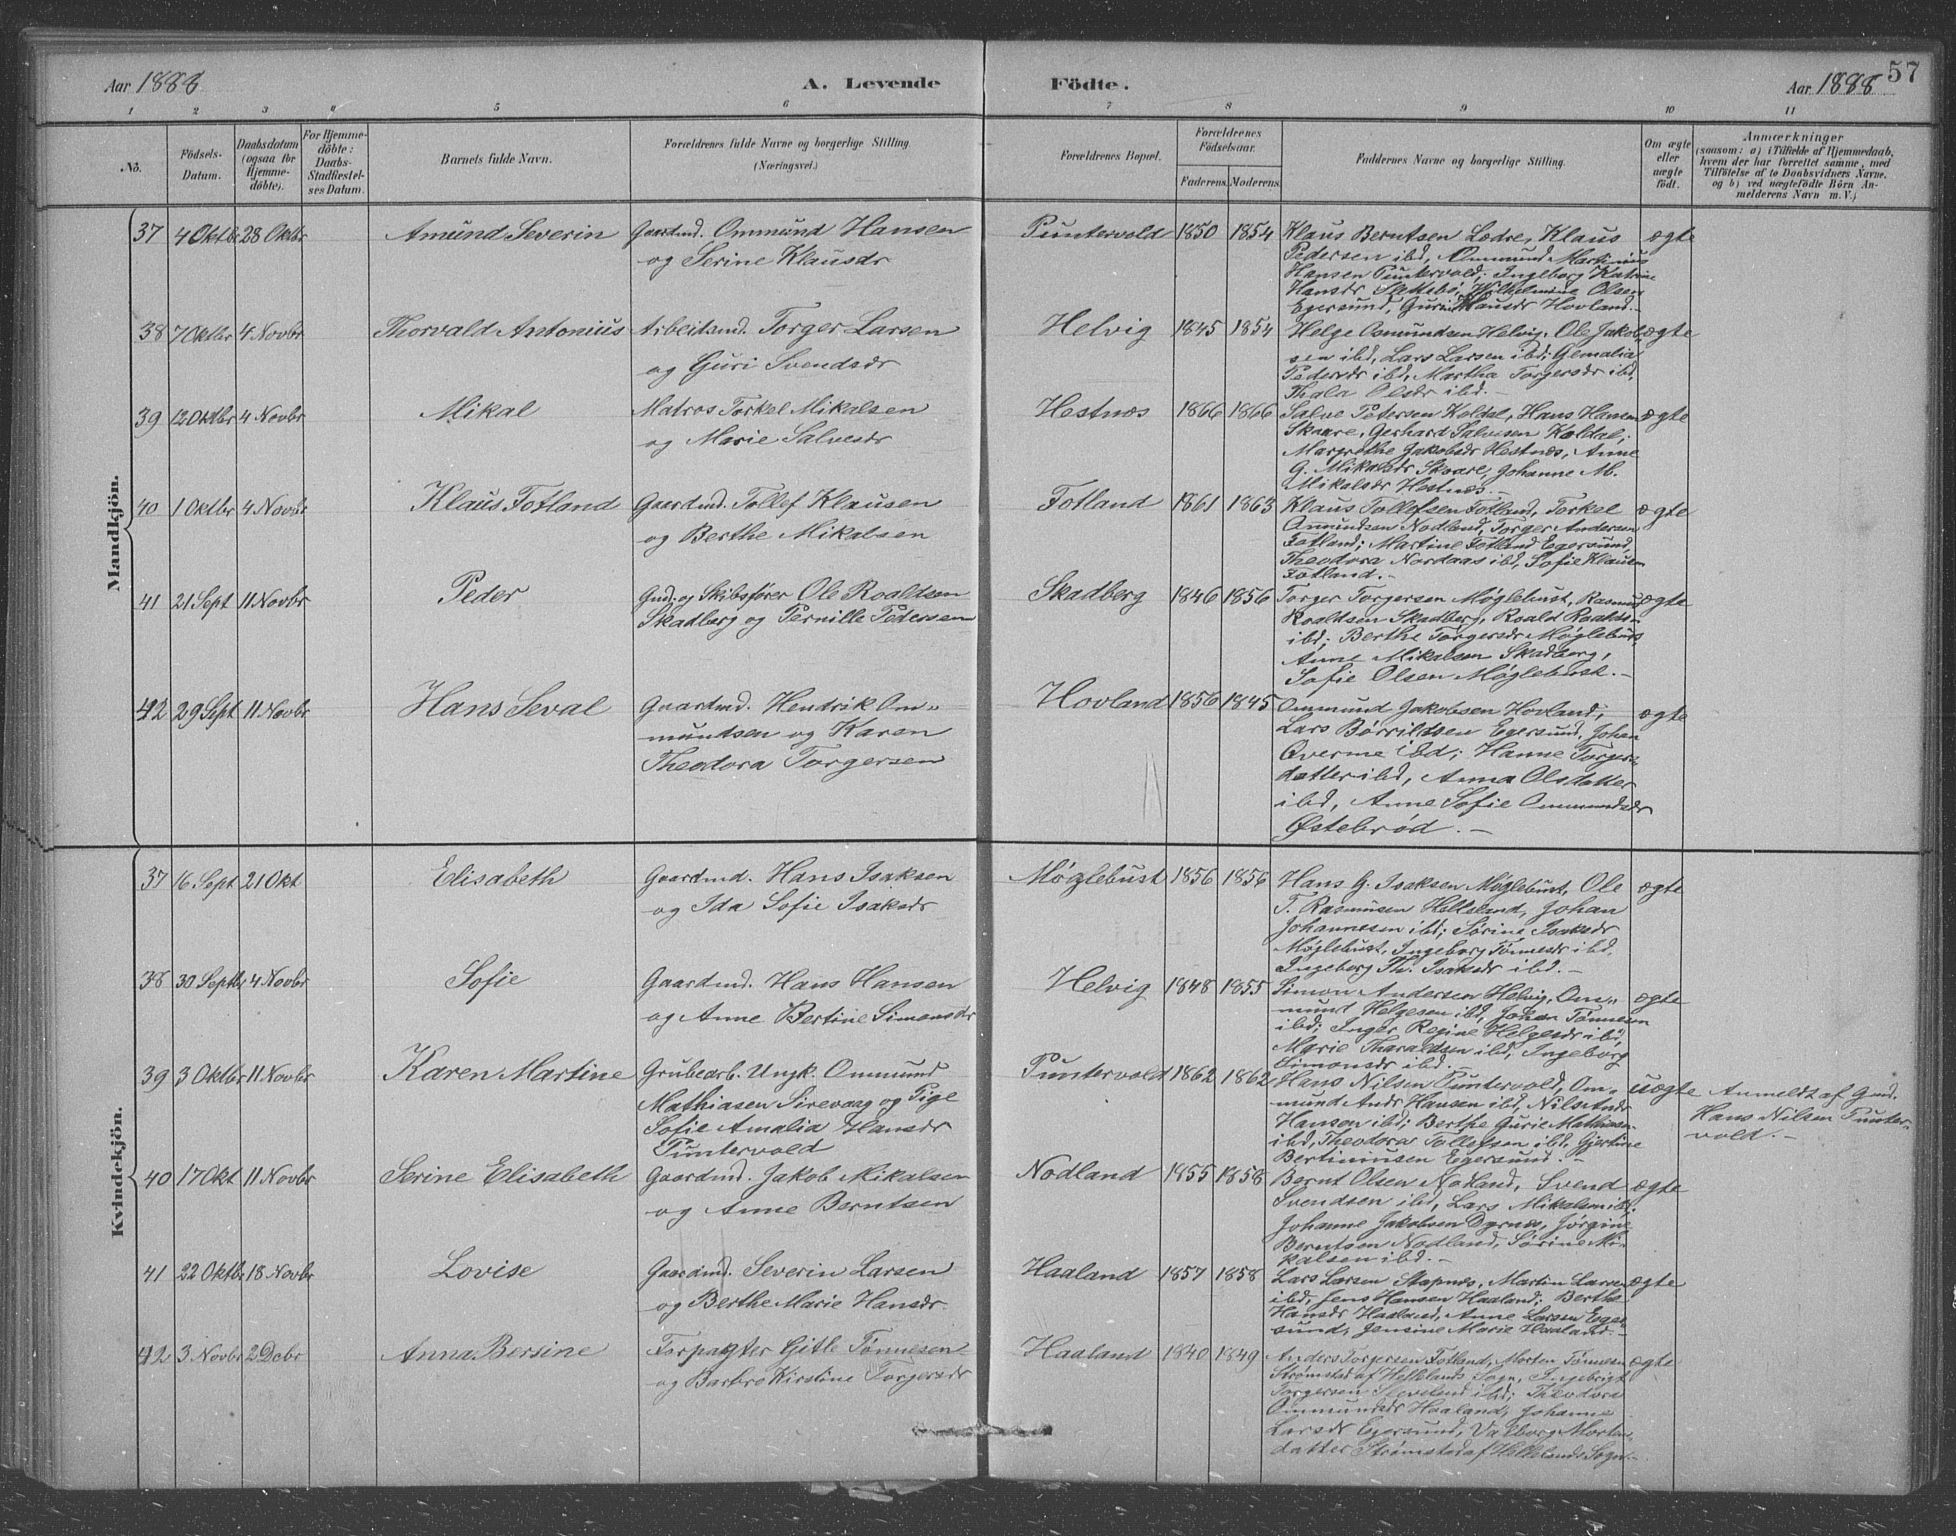 57
Aar 1888 A. Levende Födte. Aar 1888
1 2 3 4 5 6 7 8 9 10 11
No. Födsels-Datum. Daabsdatum (ogsaa for Hjemmedöbte). For Hjemmedöbte: Daabs-Stadfæstelses Datum. Barnets fulde Navn. Forældrenes fulde Navne og borgerlige Stilling. (Næringsvei.) Forældrenes Bopæl. Forældrenes Födselsaar. Faderens. Moderens. Faddernes Navne og borgerlige Stilling. Om ægte eller uægte födt. Anmærkninger (saasom: a) i Tilfælde af Hjemmedaab, hvem der har forrettet samme, med Tilföielse af to Daabsvidners Navne, og b) ved uægtefödte Börn Anmelderens Navn m. V.)
Mandkjön.
37 4 Oktbr 28 Oktbr Amund Severin Gaardmd. Ommund Hansen Puntervold 1850 1854 Klaus Berntsen Lædre, Klaus ægte
og Serine Klausdr Pedersen ibd, Ommund Martinius
Hansen Puntervold; Ingeborg Katrine
Hansdr Slettebø, Wilhelmine Olsen
Egersund, Guri Klausdr Hovland.
38 7 Oktbr 4 Novbr Thorvald Antonius Arbeitsmd. Torger Larsen Helvig 1845 1854 Helge Osmundsen Helvig, Ole Jakob- ægte
og Guri Svendsdr sen ibd, Lars Larsen ibd; Gemalia
Pedersdr ibd, Martha Torgersdr ibd,
Thala Olsdr ibd.
39 12 Oktbr 4 Novbr Mikal Matros Torkel Mikalsen Hestnes 1866 1866 Salve Petersen Koldal, Hans Hansen ægte
og Marie Salvesdr Skaare, Gerhard Salvesen Koldal;
Margrethe Jakobsdr Hestnes, Anne
G. Mikalsdr Skaare, Johanne M.
Mikalsdr Hestnes.
40 1 Oktbr 4 Novbr Klaus Fotland Gaardmd. Tollef Klausen Fotland 1861 1863 Klaus Tollefsen Fotland, Torkel ægte
og Berthe Mikalsen Omundsen Nodland, Torger Andersen
Fotland; Martine Fotland Egersund,
Theodora Nordaas ibd, Sofie Klausen
Fotland.
41 21 Sept 11 Novbr Peder Gmd. og Skibsfører Ole Roaldsen Skadberg 1846 1856 Torger Torgersen Møglebust, Rasmus ægte
Skadberg og Pernille Pedersen Roaldsen Skadberg, Roald Roaldsen
ibd; Berthe Torgersdr Møglebust,
Anne Mikalsen Skadberg,
Sofie Olsen Møglebust.
42 29 Sept 11 Novbr Hans Seval Gaardmd. Hendrik Om- Hovland 1856 1845 Ommund Jakobsen Hovland, ægte
mundsen og Karen Lars Børrildsen Egersund, Johan
Theodora Torgersen Qverme ibd; Hanne Torgers-
datter ibd, Anna Olsdatter
ibd, Anne Sofie Ommundsdr
Østebrød.
Kvindekjön.
37 16 Sept 21 Okt Elisabeth Gaardmd. Hans Isaksen Møglebust 1856 1856 Hans G. Isaksen Møglebust, Ole ægte
og Ida Sofie Isaksdr T. Rasmusen Helleland, Johan
Johannessen ibd; Sørine Isaksdr
Møglebust, Ingeborg Tønnesdr ibd,
Ingeborg Th. Isaksdr ibd.
38 30 Septbr 4 Novbr Sofie Gaardmd. Hans Hansen Helvig 1848 1855 Simon Andersen Helvig, Om- ægte
og Anne Bertine Simonsdr mund Helgesen ibd, Johan Tønnesen
ibd; Inger Regine Helgesdr ibd,
Marie Tharaldsen ibd, Ingeborg
Simonsdr ibd.
39 3 Oktbr 11 Novbr Karen Martine Grubearb. Ungk. Ommund Puntervold 1862 1862 Hans Nilsen Puntervold, Om- uægte Anmeldt af Gmd.
Mathiasen Sirevaag og Pige mund Andr Hansen ibd, Nils Andr Hans Nilsen Punter-
Sofie Amalia Hansdr Hansen ibd; Berthe Gurie Mathiasen vold.
Puntervold ibd, Theodora Tollefsen ibd, Gjertine
Bertinusen Egersund.
40 17 Okt 11 Novbr Serine Elisabeth Gaardmd. Jakob Mikalsen Nodland 1855 1858 Bernt Olsen Nodland, Svend ægte
og Anne Berntsen Svendsen ibd, Lars Mikalsen ibd;
Johanne Jakobsen Dyrnes, Jørgine
Berntsen Nodland, Sørine Mi-
kalsen ibd.
41 22 Oktbr 18 Novbr Lovise Gaardmd. Severin Larsen Haaland 1857 1858 Lars Larsen Stapnes, Martin Larsen ægte
og Berthe Marie Hansdr. ibd, Jens Hansen Haaland; Berthe
Hansdr Haaland, Anne Larsen Eger-
sund, Jensine Marie Haaland.
42 3 Novbr 2 Debr Anna Bersine Forpagter Gitle Tønnesen Haaland 1840 1849 Anders Torgersen Fotland, Morten Tønnesen ægte
og Barbro Kirstine Torgersdr Strømstad af Hellelands Sogn, Ingebrigt
Torgersen ibd; Theodora
Ommundsdr Haaland, Johanne
Larsdr Egersund, Valborg Morten-
datter Strømstad af Hellelands Sogn.